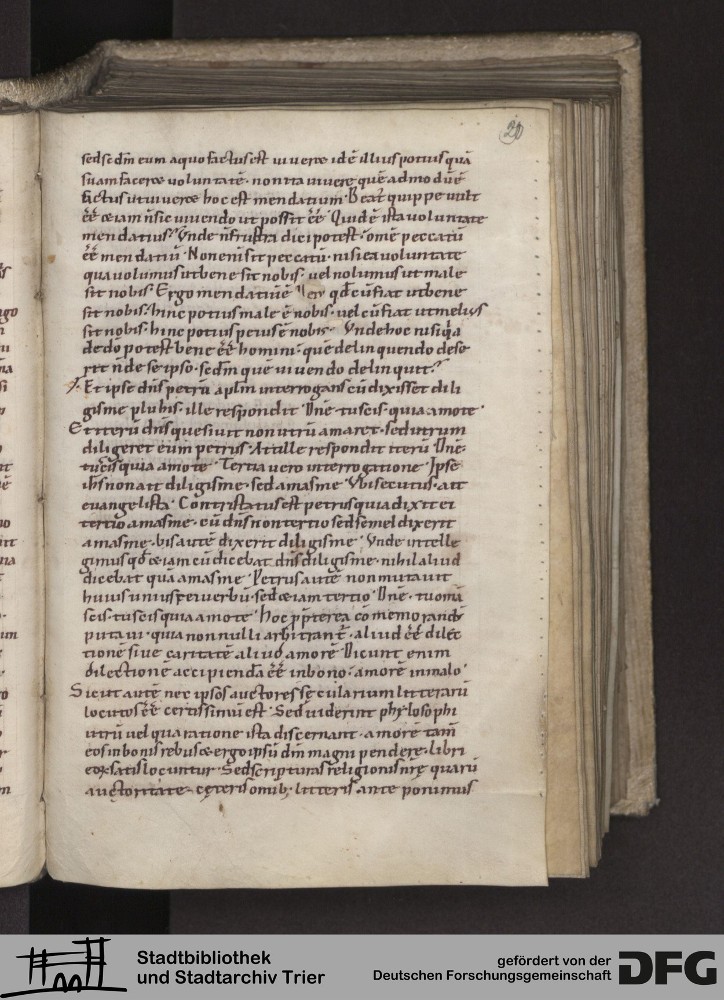 20
sed sedm eum a quo factus est viveret id ē illius potius quā
suam faceret voluntatē · non ita vivere quē ad modū ē
factus ut viveret hoc est mendatium · Beat' quippe vult
ēē etiam n̄ sic vivendo ut possit ēē · Quid ē ista voluntate
mendatius? Unde n̄ frustra dici potest · om̄e peccatū
ēē mendatiū · Non enī fit peccatū · nisi ea voluntate
qua volumus ut bene sit nobis · vel nolumus ut male
sit nobis · Ergo mendatiū ē qđ cū fiat ut bene
sit nobis · hinc potius male ē nobis · vel cū fiat ut melius
sit nobis · hinc potius peius ē nobis · Unde hoc nisi q̄a
de dō potest bene ēē homini · quē delinquendo dese
rit n̄ de se ipso · sedm que vivendo delinquit?
Et ipse dn̄s petrū aplm interrogans cū dixisset dili
gis me plus his · ille respondit · Dn̄e · tu scis · quia amo te ·
Et iterū dn̄s quesivit non utrū amaret · sed utrum
diligeret eum petrus · At ille respondit iterū · Dn̄e ·
tu scis quia amo te · Tertia vero interrogatione · Ipse
ih̄s non ait diligis me · sed amas me · Ubi secutus · ait
evangelista · Contristatus est petrus quia dixit ei
tertio amas me · cū dn̄s non tertio sed semel dixerit
amas me · bis autē dixerit diligis me · Unde intelle
gimus qđ etiam cū dicebat dn̄s diligis me · nihil aliud
dicebat quā amas me · Petrus autē non mutavit
huius unius rei verbū · sed etiam tertio · Dn̄e · tu om̄a
scis · tu scis quia amo te · hoc ppterea cōmemorandū
putavi · quia non nulli arbitrant̄ · aliud ēē dilec
tionē sive caritatē aliud amorē · Dicunt enim
dilectionē accipiendā ēē in bono · amorē in malo ·
Sic aut autē nec ipsos auctores secularium litterarū
locutos ēē certissimū est · Sed viderint phylosophi
utrū vel qua ratione ista discernant · amorē tam̄
eos in bonis rebus et erga ipsū dm̄ magni pendere · libri
eoꝝ satis locuntur · Sed scripturas religionis nr̄ę quarū
auctoritatē cęteris omib; litteris ante ponimus
Stadtbibliothek
und Stadtarchiv Trier
gefördert von der
Deutschen Forschungsgemeinschaft
DFG